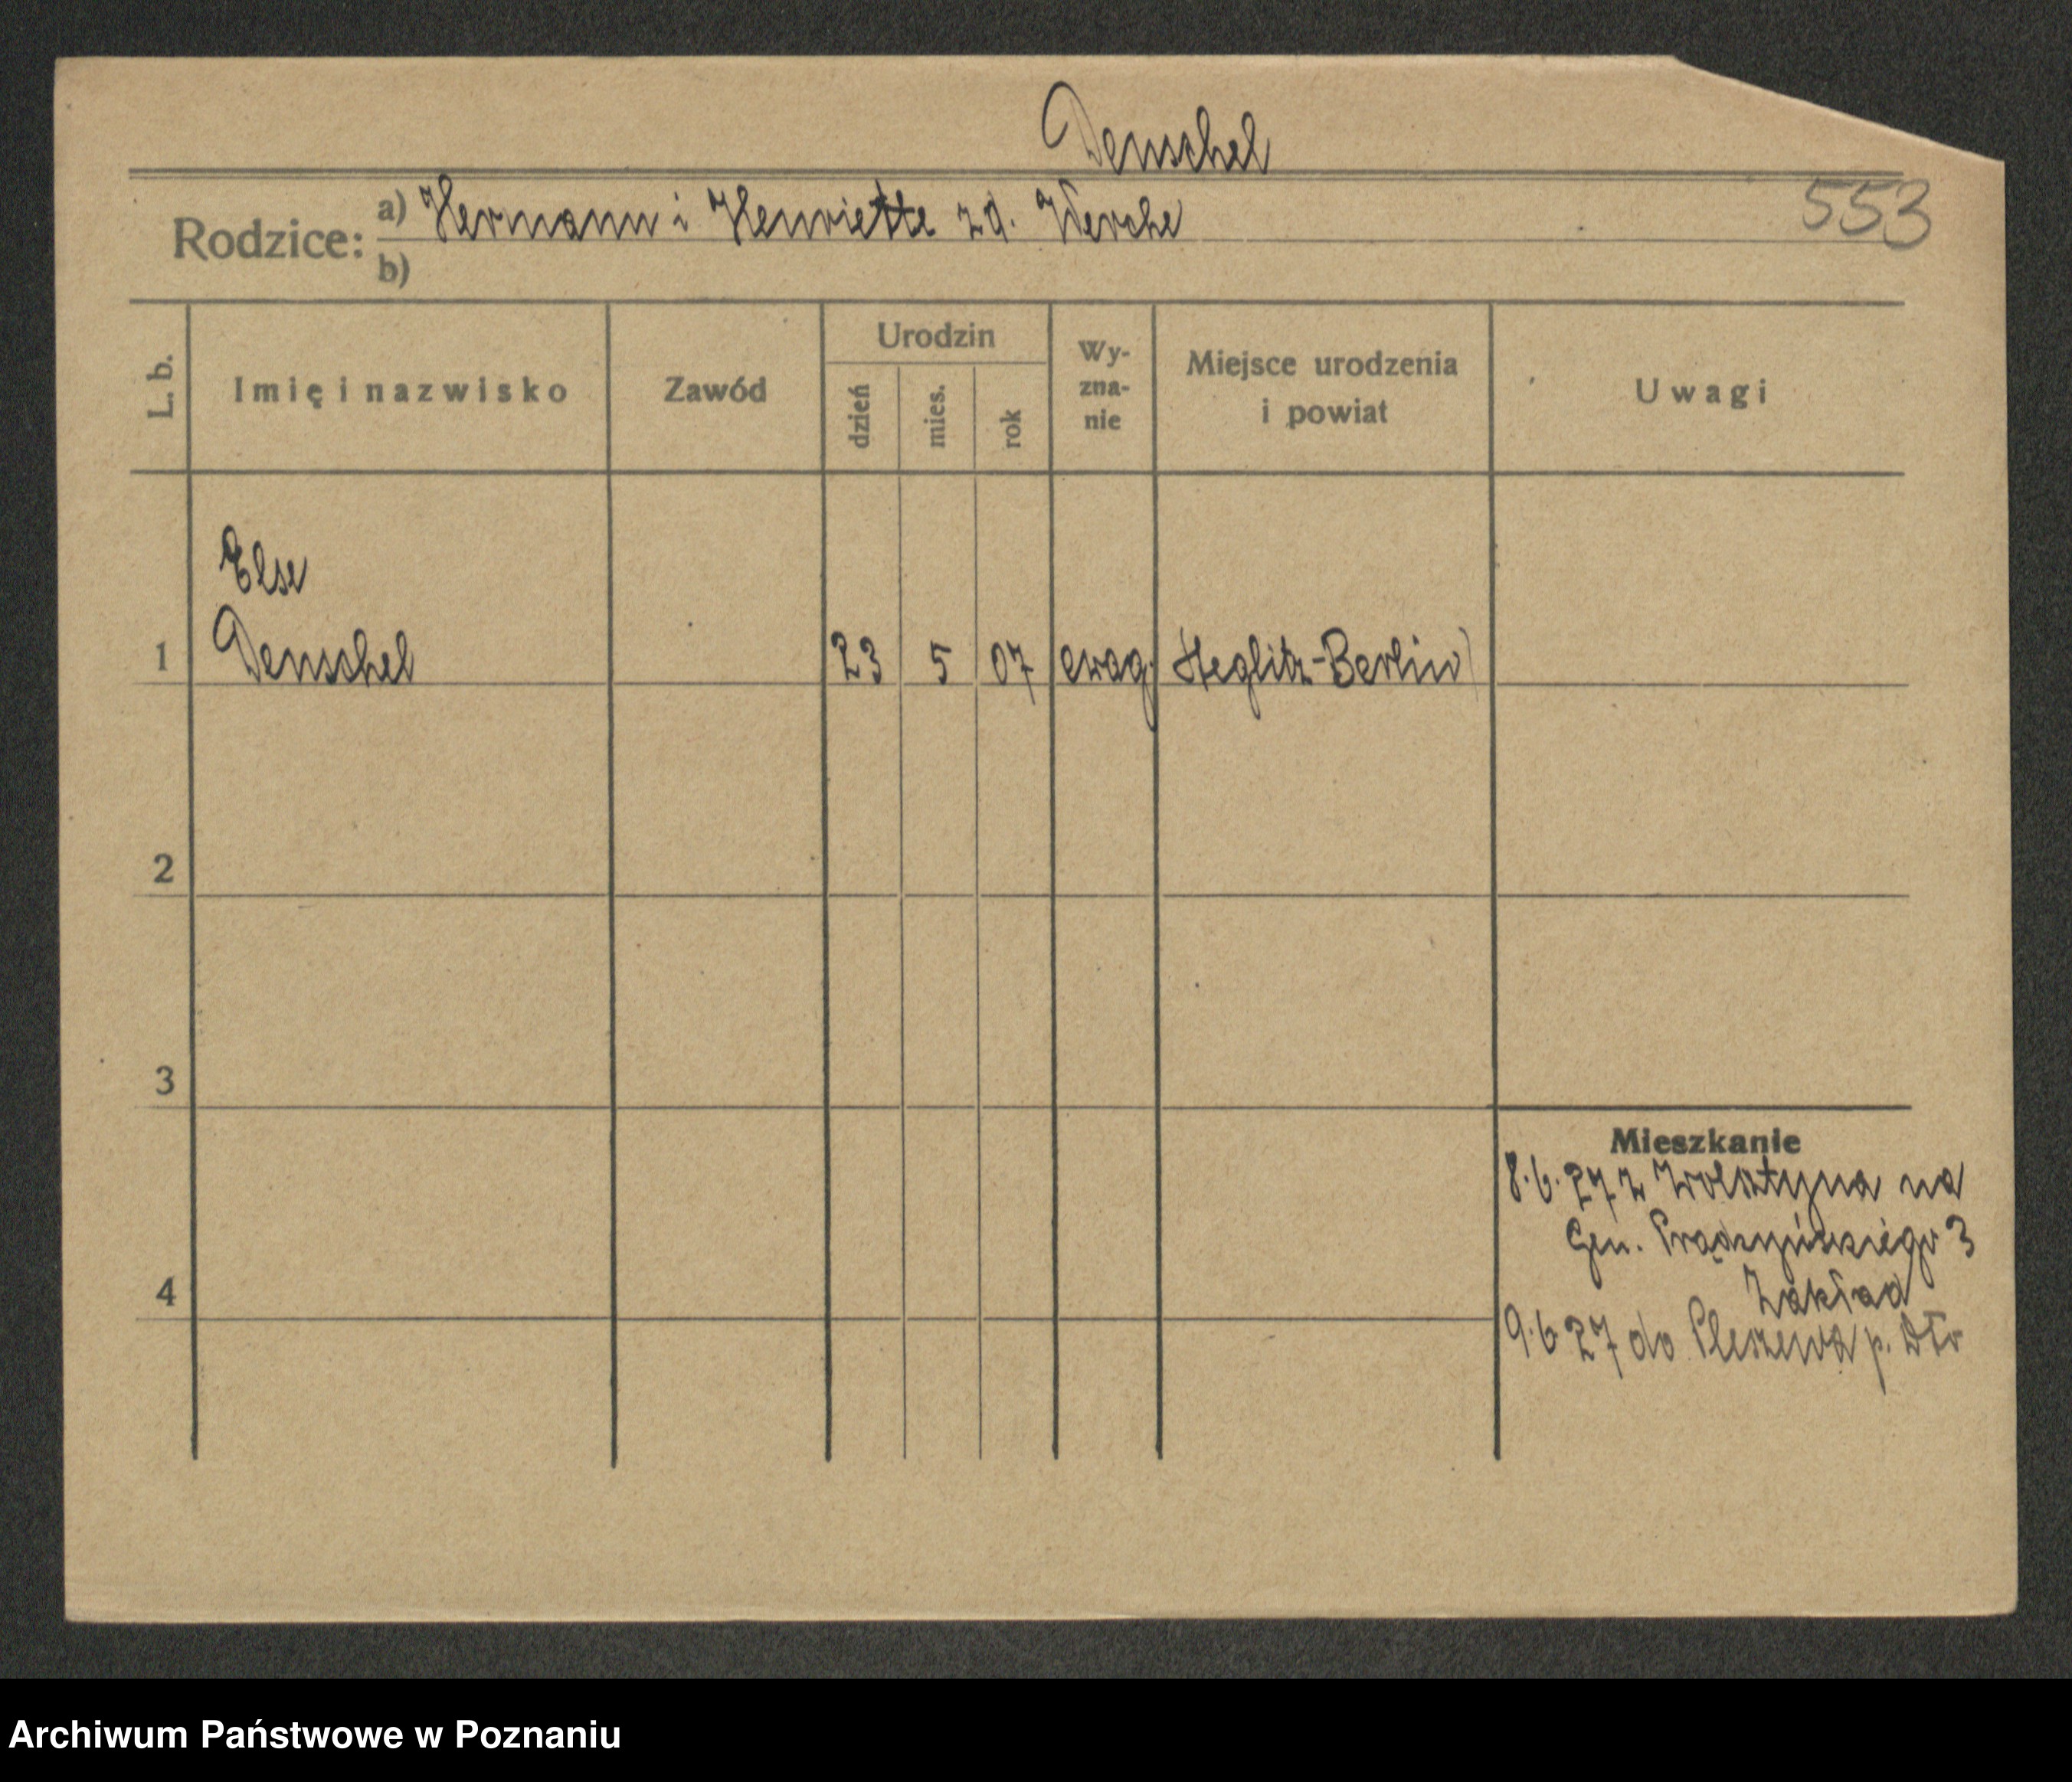 Denschel
553
Rodzice: a) Hermann i Henriette zd. Werche
b)
L. b. Imię i nazwisko Zawód Urodzin dzień mies. rok Wy-zna-nie Miejsce urodzenia i powiat Uwagi
Else
1 Denschel 23 5 07 ewag. Steglitz-Berlin
2
3
Mieszkanie
8.6.27 z Wolsztyna na
Gen. Prądzyńskiego 3
Zakład
4
9.6 27 do Pleszewa p.
Archiwum Państwowe w Poznaniu